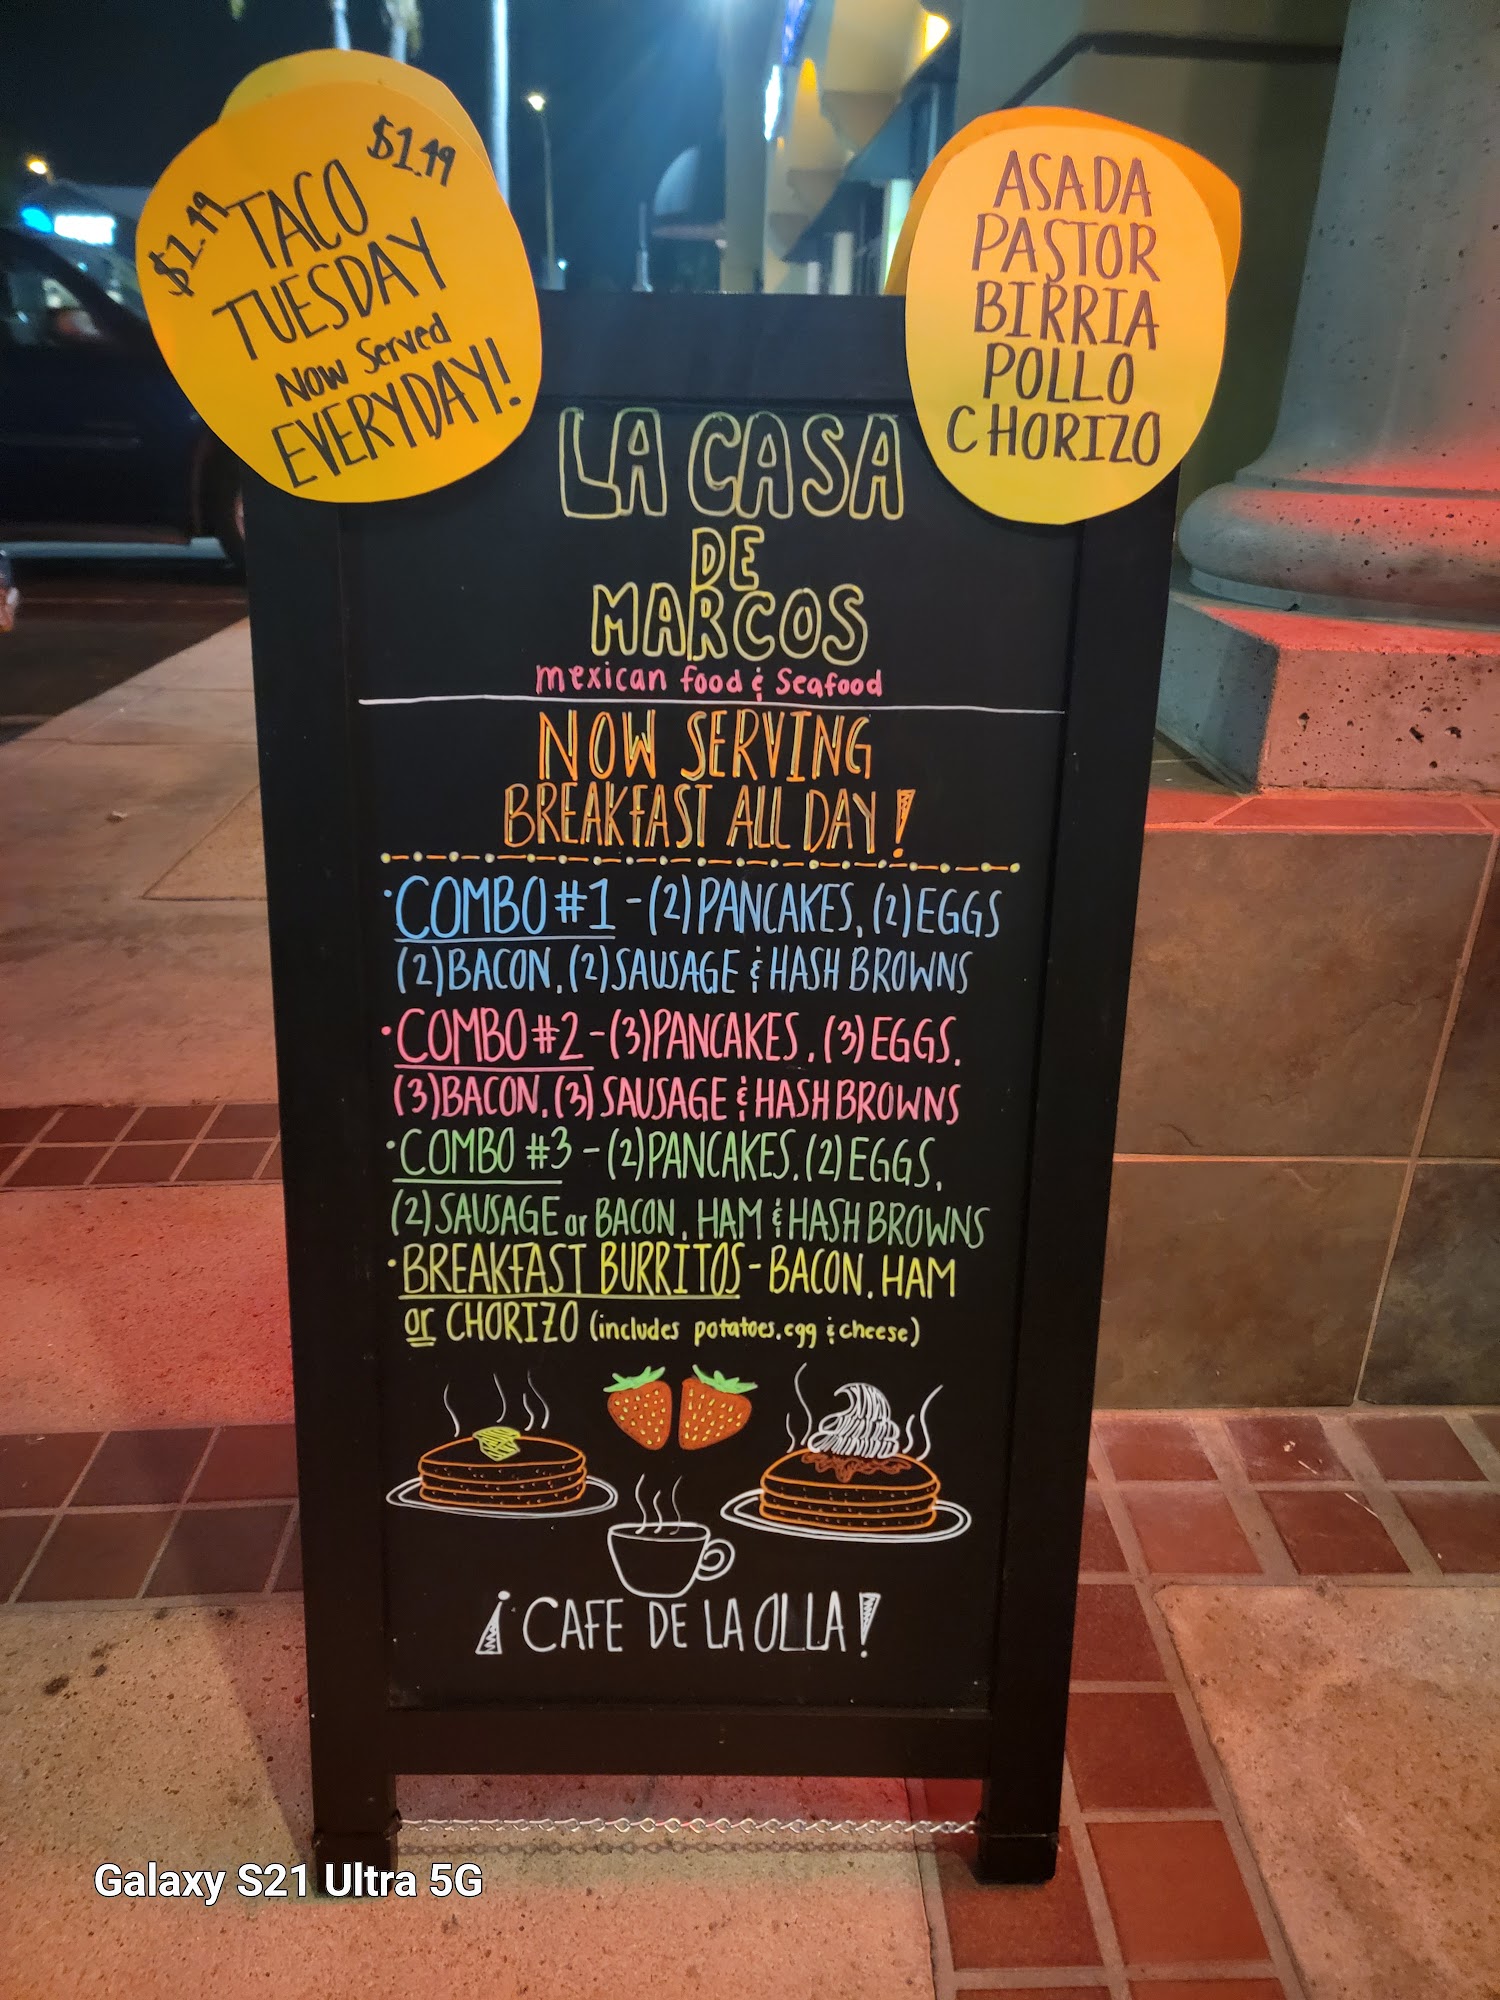 $1.49
$1.49
TACO
TUESDAY
NOW Served
EVERYDAY!
ASADA
PASTOR
BIRRIA
POLLO
CHORIZO
LA CASA
DE
MARCOS
mexican food & Seafood
NOW SERVING
BREAKFAST ALL DAY!
•COMBO #1 - (2) PANCAKES, (2) EGGS
(2) BACON, (2) SAUSAGE & HASH BROWNS
•COMBO #2 - (3) PANCAKES, (3) EGGS,
(3) BACON, (3) SAUSAGE & HASH BROWNS
•COMBO #3 - (2) PANCAKES, (2) EGGS,
(2) SAUSAGE or BACON, HAM & HASH BROWNS
•BREAKFAST BURRITOS - BACON, HAM
or CHORIZO (includes potatoes, egg & cheese)
¡CAFE DE LA OLLA!
Galaxy S21 Ultra 5G